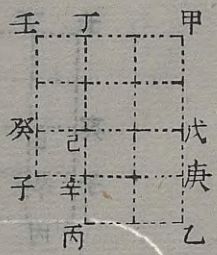 壬 丁 甲
癸 己 戊
子 辛 庚
丙 乙